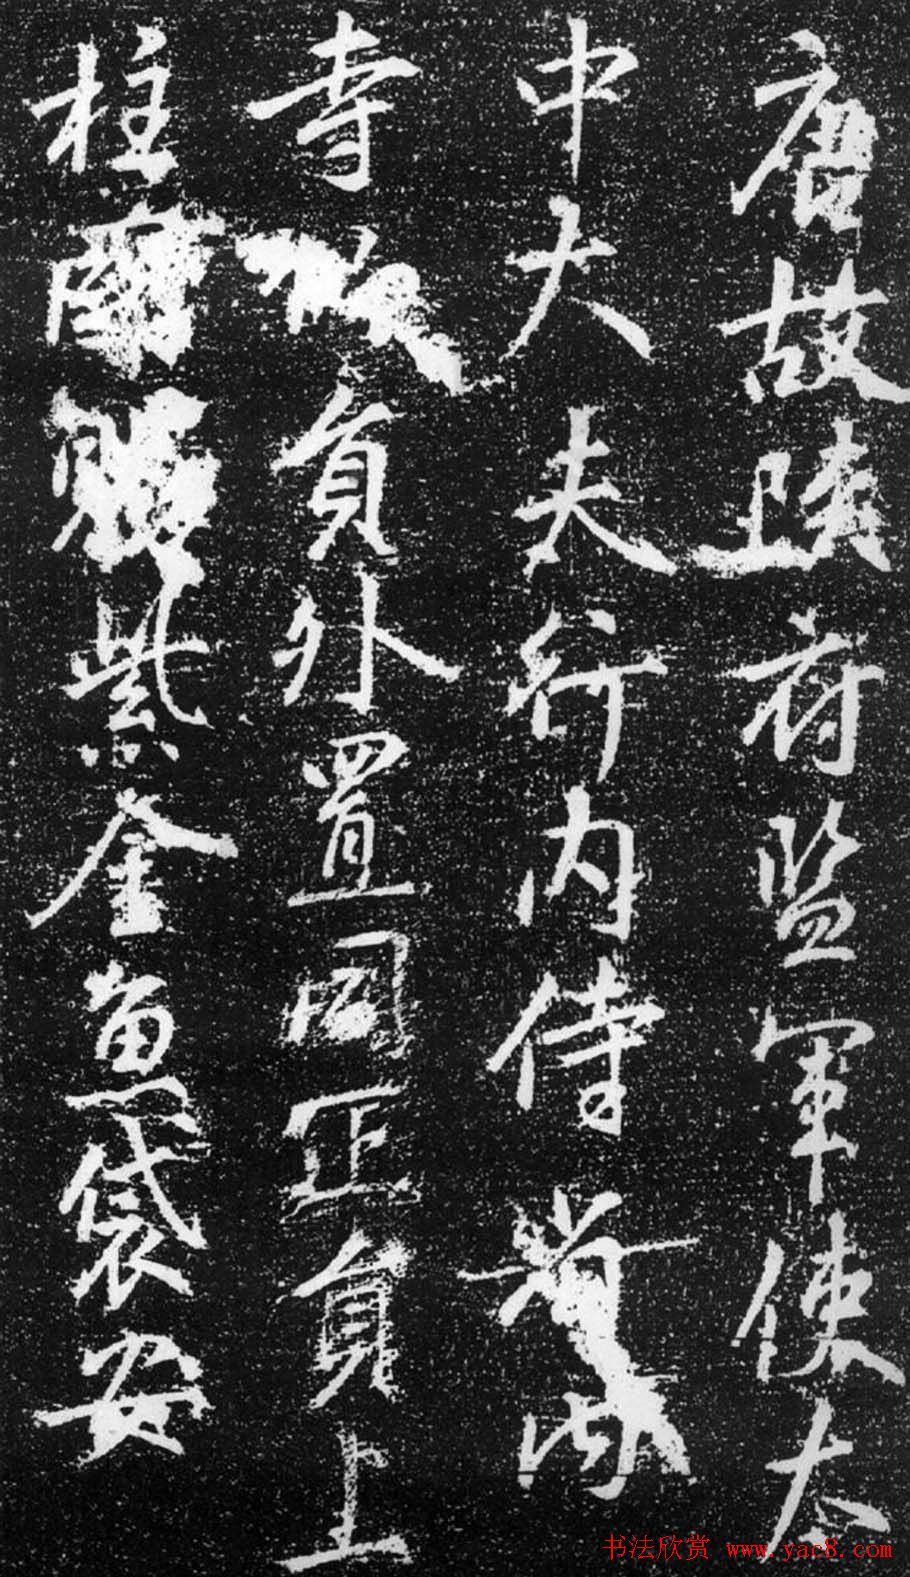 唐故監軍使太
中大夫行內侍省內
寺員外置同正員上
柱國賜紫金魚袋安
书法欣赏 www.yac8.com